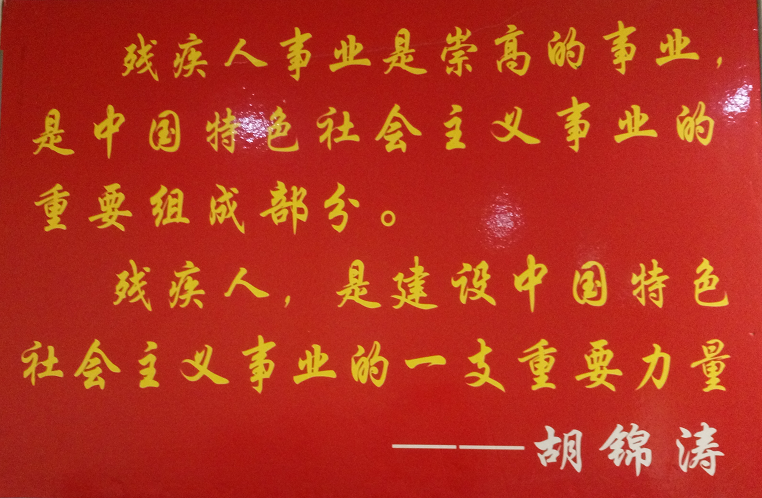 残疾人事业是崇高的事业，
是中国特色社会主义事业的
重要组成部分。
残疾人，是建设中国特色
社会主义事业的一支重要力量
——胡锦涛